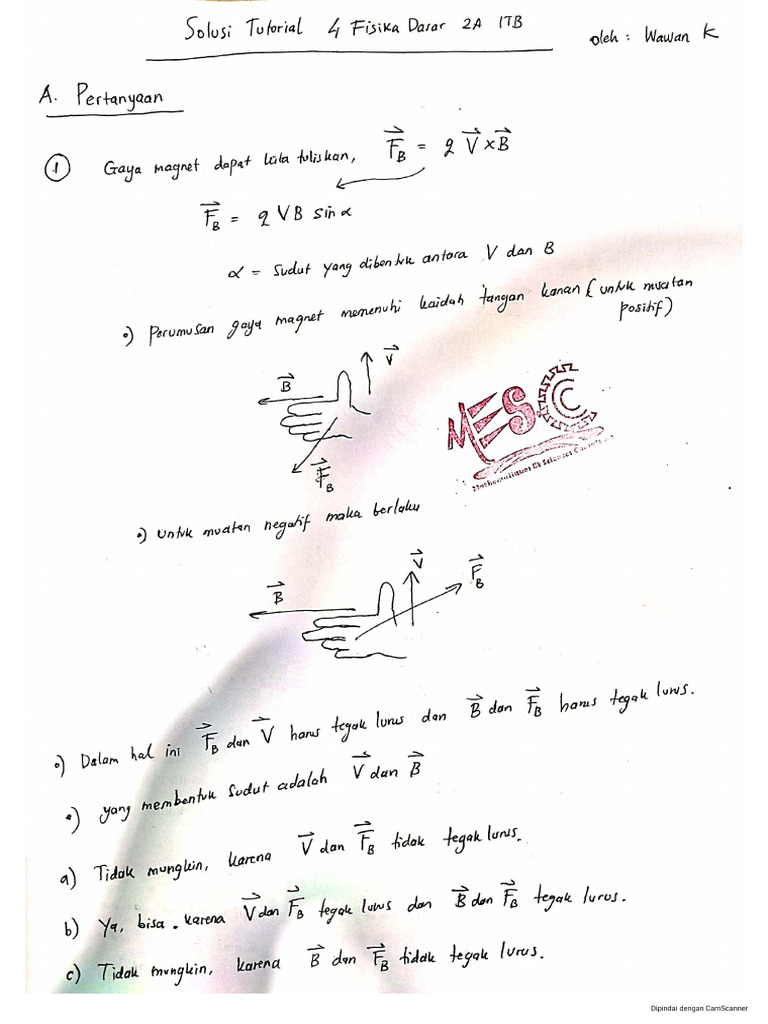 Solusi Tutorial 4 Fisika Dasar 2A ITB
oleh : Wawan K
A. Pertanyaan
① Gaya magnet dapat kita tuliskan, F⃗_B = q V⃗ × B⃗
F⃗_B = q V B sin α
α = sudut yang dibentuk antara V dan B
•) Perumusan gaya magnet memenuhi kaidah tangan kanan (untuk muatan
positif)
V⃗
B⃗
F⃗_B
MESC
Mathematiques Et Sciences
•) untuk muatan negatif maka berlaku
V⃗
F⃗_B
B⃗
•) Dalam hal ini F⃗_B dan V⃗ harus tegak lurus dan B⃗ dan F⃗_B harus tegak lurus.
•) yang membentuk sudut adalah V⃗ dan B⃗
a) Tidak mungkin, karena V⃗ dan F⃗_B tidak tegak lurus.
b) Ya, bisa. karena V⃗ dan F⃗_B tegak lurus dan B⃗ dan F⃗_B tegak lurus.
c) Tidak mungkin, karena B⃗ dan F⃗_B tidak tegak lurus.
Dipindai dengan CamScanner